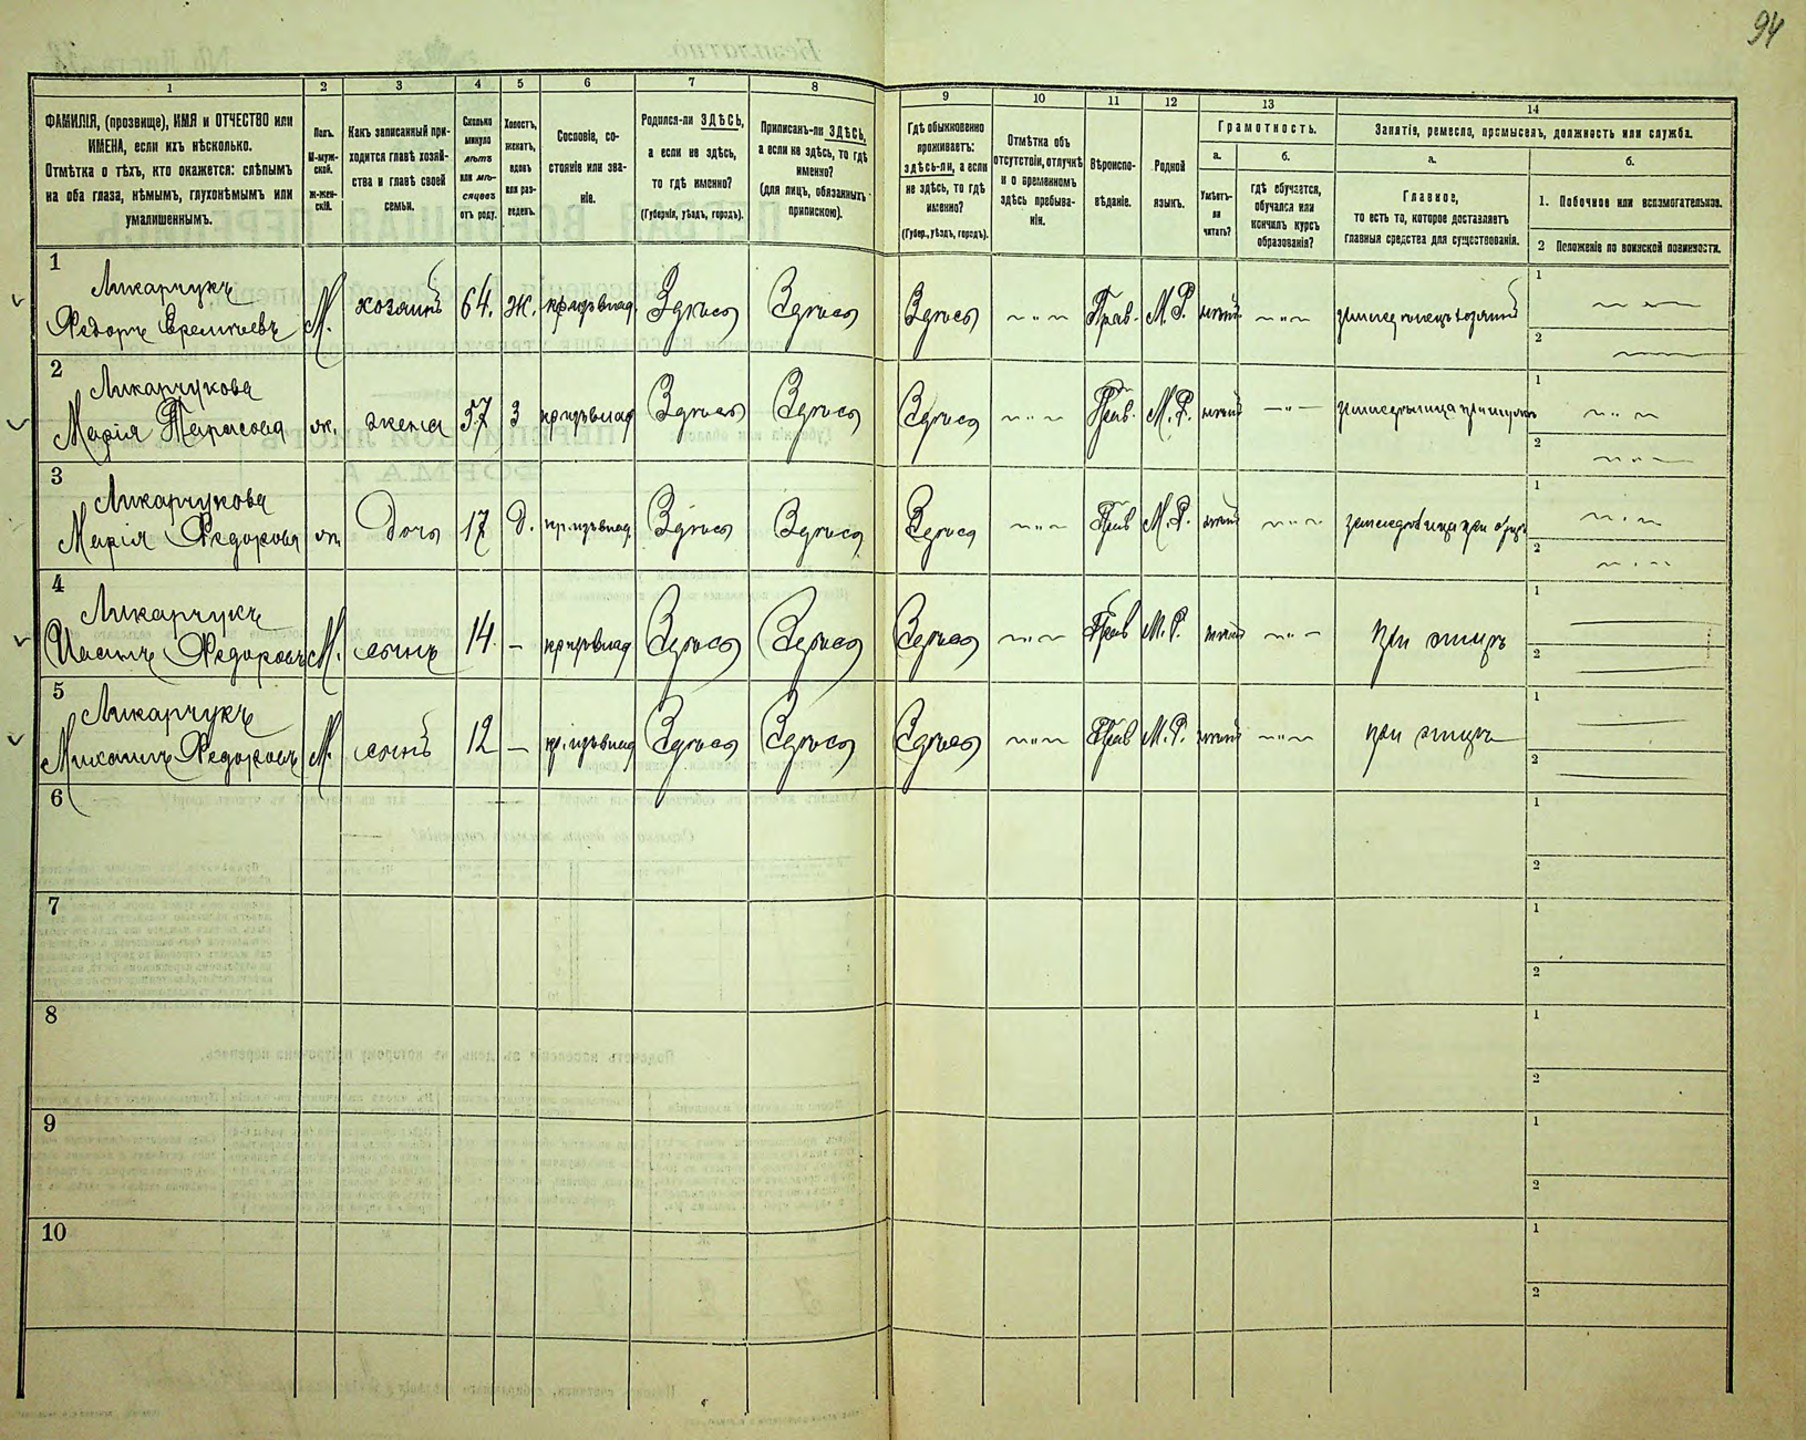 94
1
2
3
4
5
6
7
8
9
10
11
12
13
14
ФАМИЛІЯ, (прозвище), ИМЯ и ОТЧЕСТВО или
ИМЕНА, если ихъ нѣсколько.
Отмѣтка о тѣхъ, кто окажется: слѣпымъ
на оба глаза, нѣмымъ, глухонѣмымъ или
умалишеннымъ.
Полъ.
М-муж-
ской.
Ж-жен-
скій.
Какъ записанный при-
ходится главѣ хозяй-
ства и главѣ своей
семьи.
Сколько
минуло
лѣтъ
или мѣ-
сяцевъ
отъ роду.
Холостъ,
женатъ,
вдовъ
или раз-
веденъ.
Сословіе, со-
стояніе или зва-
ніе.
Родился-ли ЗДѢСЬ,
а если не здѣсь,
то гдѣ именно?
(Губернія, уѣздъ, городъ).
Приписанъ-ли ЗДѢСЬ,
а если не здѣсь, то гдѣ
именно?
(для лицъ, обязанныхъ
припискою).
Гдѣ обыкновенно
проживаетъ:
здѣсь-ли, а если
не здѣсь, то гдѣ
именно?
(Губер., уѣздъ, городъ).
Отмѣтка объ
отсутствіи, отлучкѣ
и о временномъ
здѣсь пребыва-
ніи.
Вѣроиспо-
вѣданіе.
Родной
языкъ.
Грамотность.
а.
б.
Умѣетъ-
ли
читать?
гдѣ обучается,
обучался или
кончилъ курсъ
образованія?
Занятія, ремесло, промыселъ, должность или служба.
а.
б.
Главное,
то есть то, которое доставляетъ
главныя средства для существованія.
1. Побочное или вспомогательное.
2 Положеніе по воинской повинности.
1
Ликарчукъ
Федоръ Еремѣевъ М. хозяинъ 64. Ж. Здѣсь Здѣсь Здѣсь Прав. М. Р. 1
2
2
Ликарчукова
Марія Тарасова ж. жена 57 З Здѣсь Здѣсь Здѣсь Прав. М. Р. 1
2
3
Ликарчукова
Марія Федорова ж. Дочь 17 Д. Здѣсь Здѣсь Здѣсь Прав М. Р. 1
2
4
Ликарчукъ
Федоровъ М. сынъ 14 – Здѣсь Здѣсь Здѣсь Прав М. Р. при отцѣ 1
2
5
Ликарчукъ
Михаилъ Федоровъ М. сынъ 12 – Здѣсь Здѣсь Здѣсь Прав М. Р. при отцѣ 1
2
6 1
2
7 1
2
8 1
2
9 1
2
10 1
2